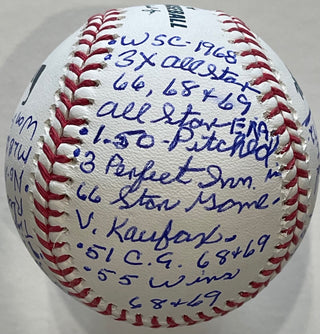 •WSC-1968
•3X all Star
66, 68+69
all Star ERA
•1.50-Pitched
•3 Perfect Inn. in
66 Star Game.
V. Kaufax.
•51 C.G. 68+69
•55 Wins
68+69